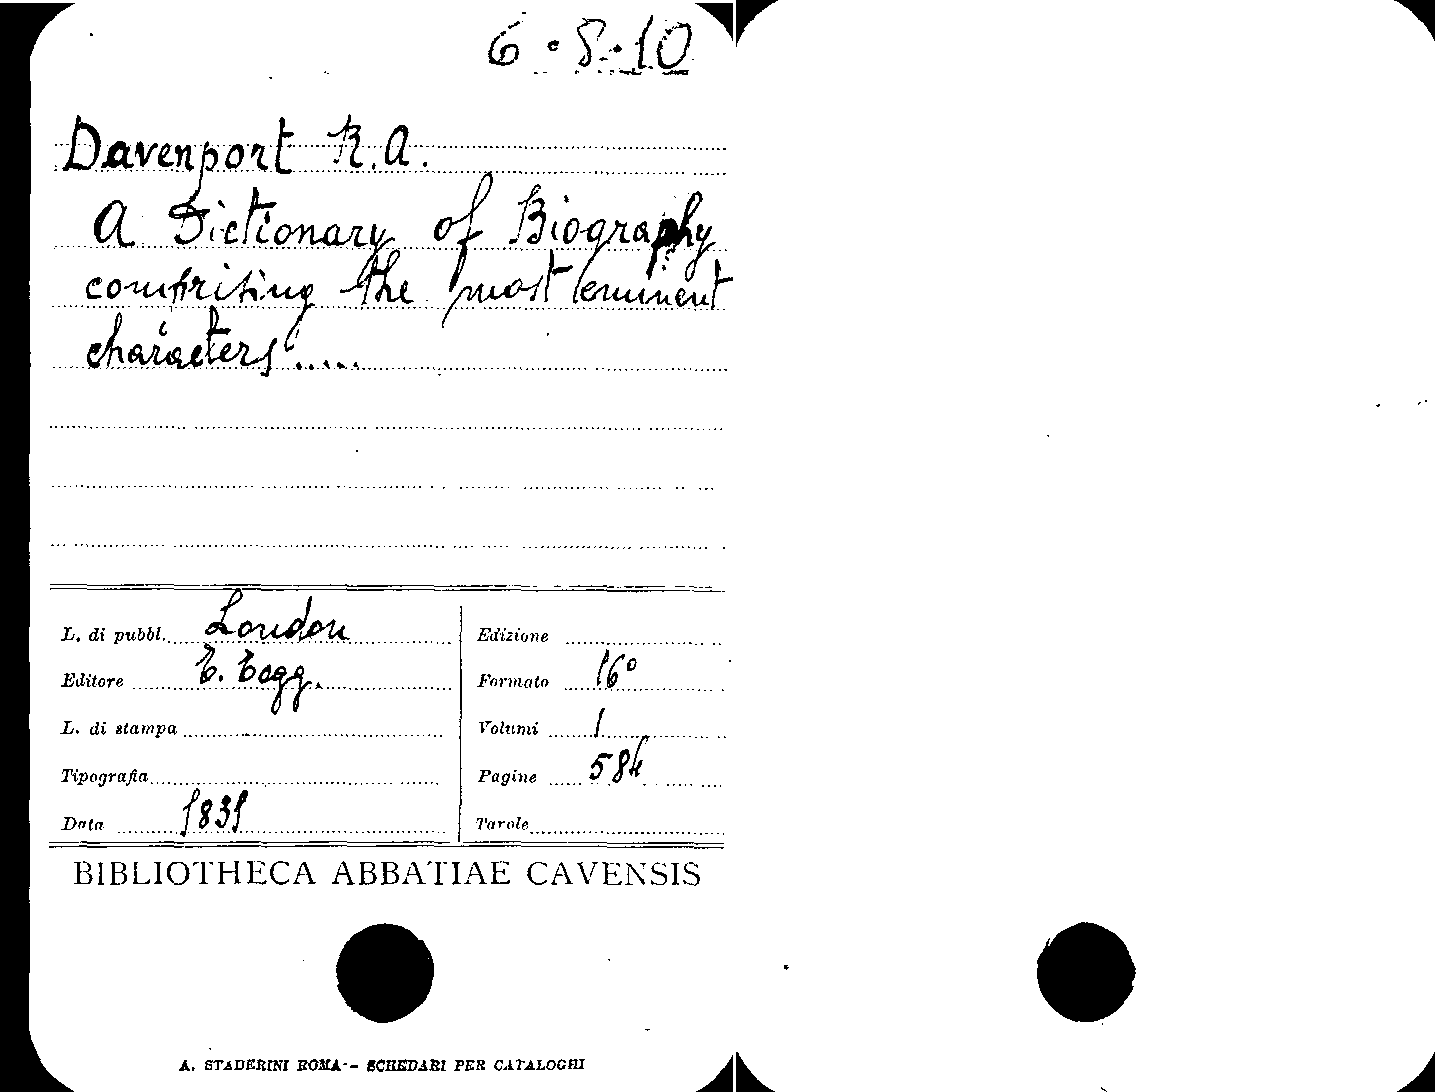 6.8.10
Davenport R.A.
A Dictionary of Biography
comprising the most eminent
characters.....
L. di pubbl. London
Edizione
Editore T. Tegg.
Formato 16°
L. di stampa
Volumi 1
Tipografia
Pagine 584
Data 1831
Tavole
BIBLIOTHECA ABBATIAE CAVENSIS
A. STADERINI ROMA - SCHEDARI PER CATALOGHI